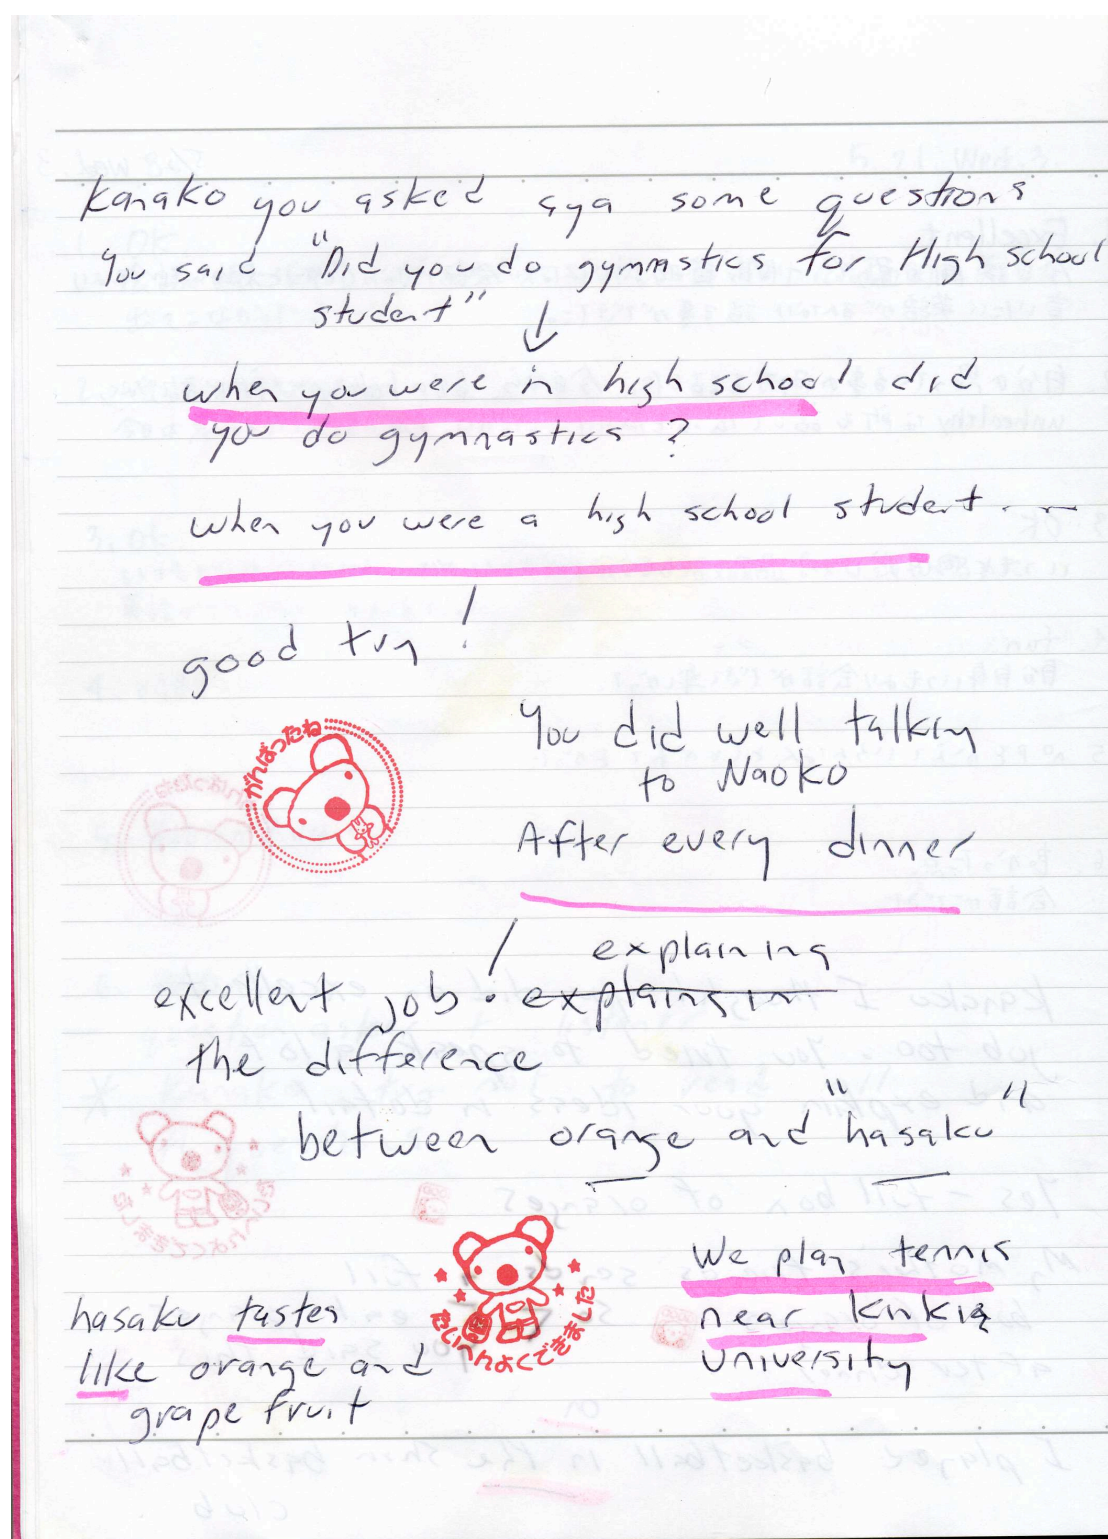 Kanako you asked aya some questions
You said "Did you do gymnastics for High school
student" ↓
when you were in high school did
you do gymnastics ?
when you were a high school student...
good try !
がんばったね
You did well talking
to Naoko
After every dinner
explaining
excellent job !
the difference
between orange and "hasaku"
たいへんよくできました
We play tennis
near
university
hasaku tastes
like orange and
grape fruit